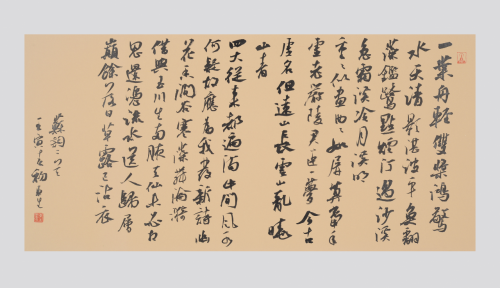 一葉舟輕雙槳鴻驚
水天清影湛波平魚翻
藻鑑鷺點煙汀過沙溪
急霜溪冷月溪明
重々似畫曲々如屏算當年
虛老嚴陵君臣一夢今古
虛名但遠山長雲山亂曉
山青
四大從來都遍滿此間風水
何疑故應為我發新詩幽
花香澗谷寒藻舞淪漪
借與玉川生兩腋天仙未必相
思還憑流水送人歸層
巔餘落日草露已沾衣
蘇詞二首
壬寅